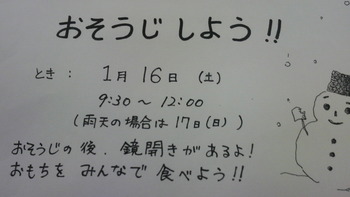 おそうじしよう!!
とき： 1月16日（土）
9:30～12:00
（雨天の場合は17日(日)）
おそうじの後、鏡開きがあるよ!
おもちをみんなで食べよう!!